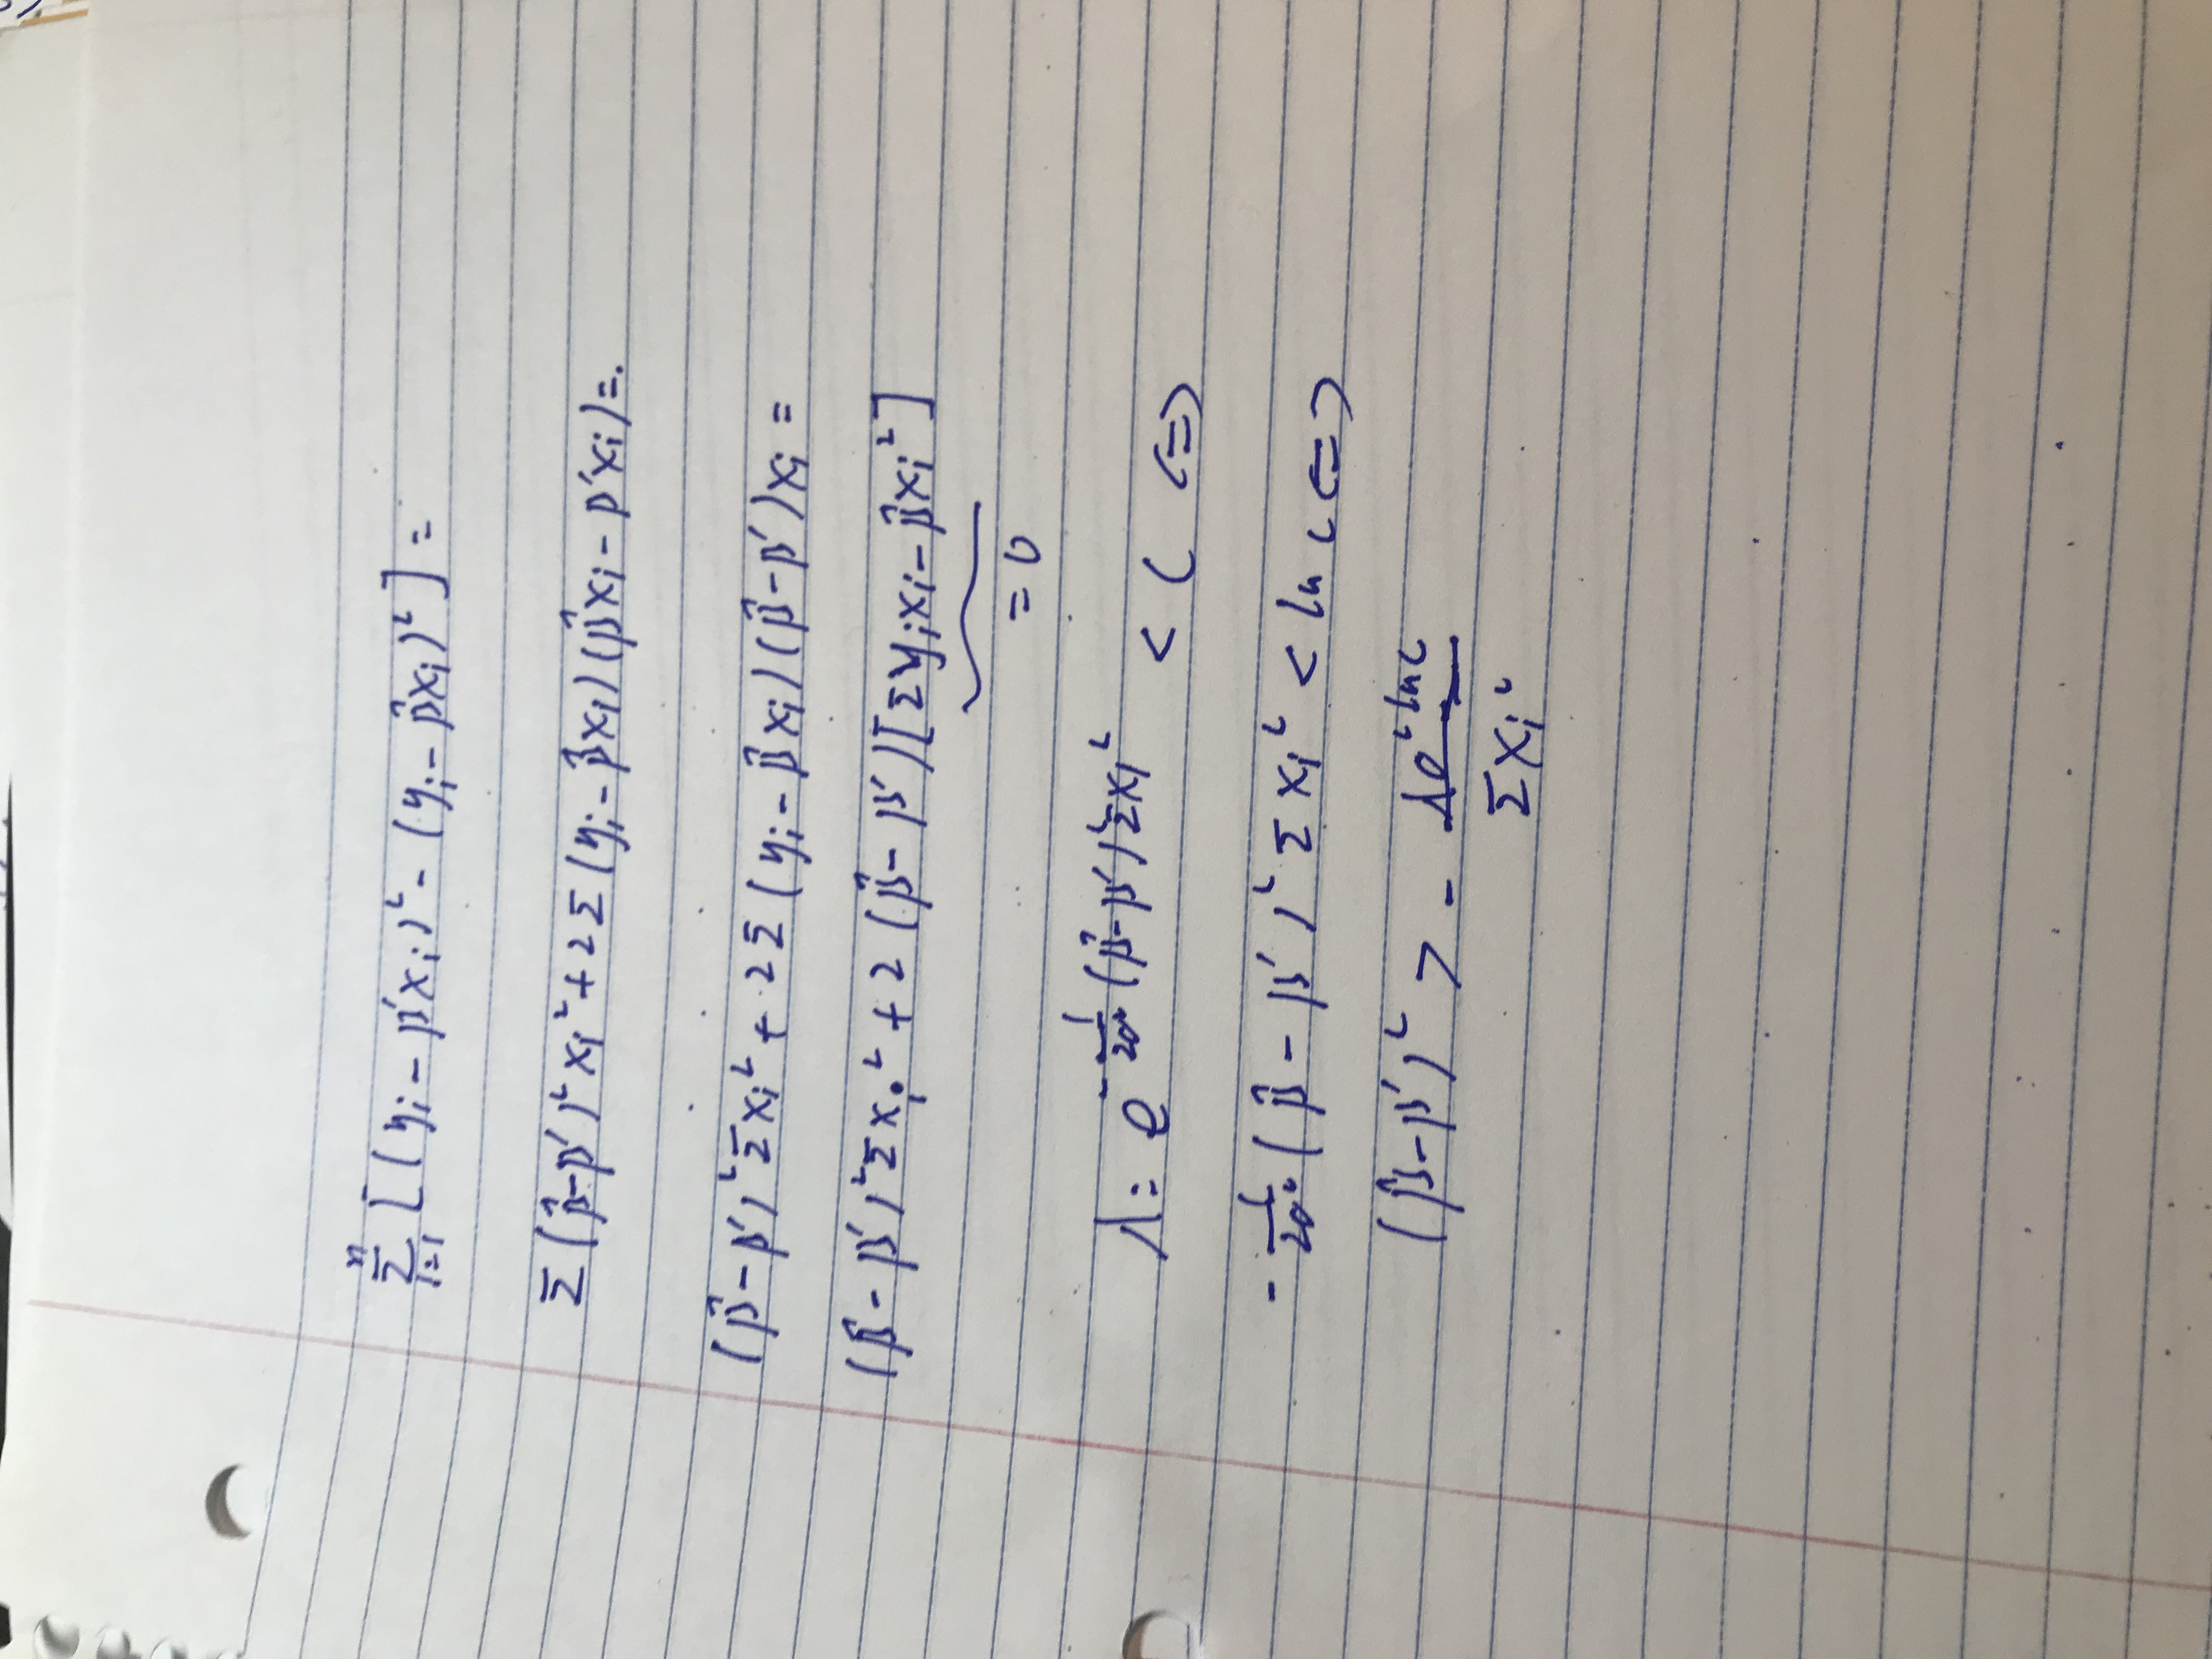 n
Σ [(yᵢ − β′xᵢ)² − (yᵢ − β̂xᵢ)²] =
i=1
Σ(β̂−β′)²xᵢ² + 2Σ(yᵢ − β̂xᵢ)(β̂xᵢ − β′xᵢ) =.
(β̂−β′)²Σxᵢ² + 2Σ(yᵢ − β̂xᵢ)(β̂−β′)xᵢ =
(β̂−β′)²Σxᵢ² + 2(β̂−β′)[Σyᵢxᵢ − β̂xᵢ²]
= 0
Λ = e^{−1/2σ² (β̂−β′)²Σxᵢ²} < c <=>
−1/2σ² (β̂ − β′)² Σxᵢ² < ln c <=>
(β̂−β′)² > − 2σ² ln c / Σxᵢ²